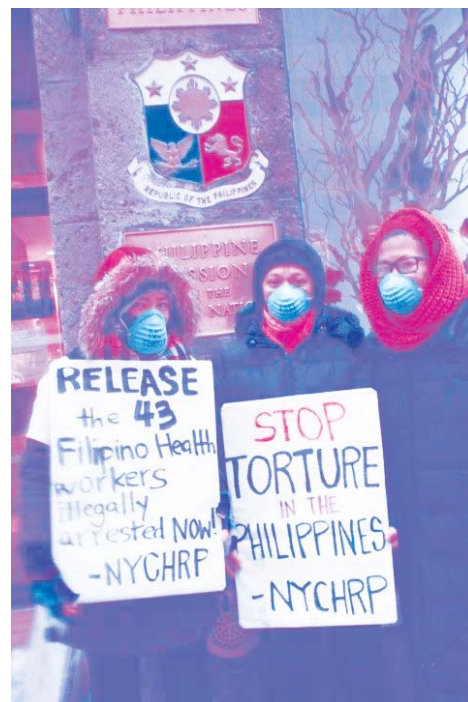 PHILIPPINES
REPUBLIC OF THE PHILIPPINES
PHILIPPINE
MISSION
THE
RELEASE
the 43
Filipino Health
workers
illegally
arrested NOW!
-NYCHRP
STOP
TORTURE
IN THE
PHILIPPINES
-NYCHRP